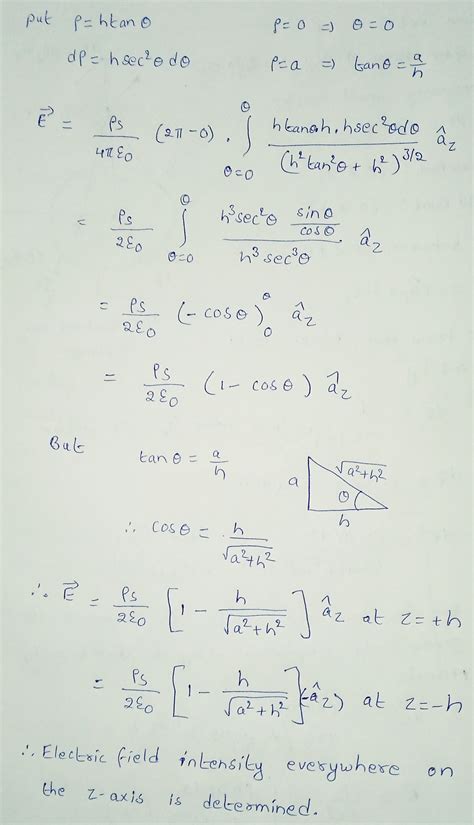 Put ρ = h tan θ ρ = 0 ⇒ θ = 0
dρ = h sec²θ dθ ρ = a ⇒ tan θ = a/h
E⃗ = ρs/4πε0 (2π-0) . ∫_{θ=0}^{θ} h tanθ h . h sec²θ dθ / (h² tan²θ + h²)^{3/2} âz
= ρs/2ε0 ∫_{θ=0}^{θ} h³ sec²θ sinθ/cosθ / h³ sec³θ âz
= ρs/2ε0 (-cos θ)_0^θ âz
= ρs/2ε0 (1 - cos θ) âz
But tan θ = a/h
a √a²+h² θ h
∴ cos θ = h/√a²+h²
∴ E⃗ = ρs/2ε0 [1 - h/√a²+h²] âz at z = +h
= ρs/2ε0 [1 - h/√a²+h²] (-âz) at z = -h
∴ Electric field intensity everywhere on
the z-axis is determined.